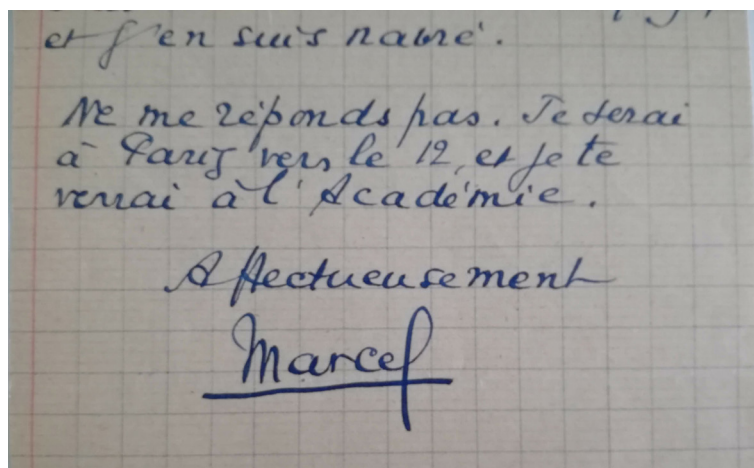 et j'en suis navré.
Ne me réponds pas. Je serai
à Paris vers le 12, et je te
verrai à l'Académie.
Affectueusement
Marcel